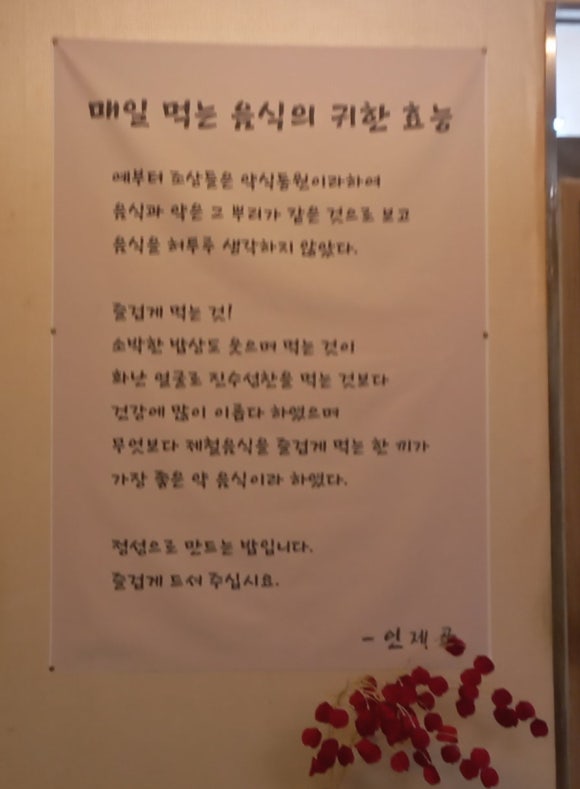 매일 먹는 음식의 귀한 효능
예부터 조상들은 약식동원이라하여
음식과 약은 그 뿌리가 같은 것으로 보고
음식을 허투루 생각하지 않았다.
즐겁게 먹는 것!
소박한 밥상도 웃으며 먹는 것이
화난 얼굴로 진수성찬을 먹는 것보다
건강에 많이 이롭다 하였으며
무엇보다 제철음식을 즐겁게 먹는 한 끼가
가장 좋은 약 음식이라 하였다.
정성으로 만드는 밥입니다.
즐겁게 드셔 주십시요.
- 인제